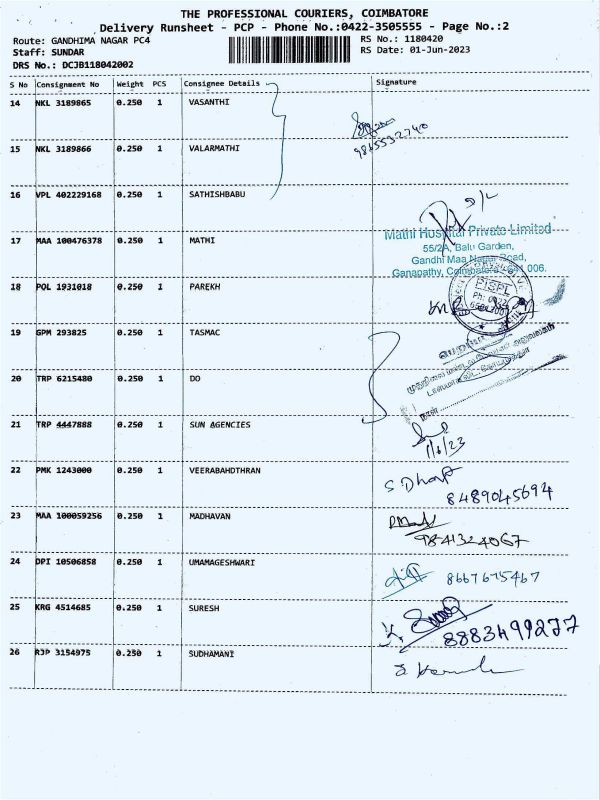 THE PROFESSIONAL COURIERS, COIMBATORE
Delivery Runsheet - PCP - Phone No.:0422-3505555 - Page No.:2
Route: GANDHIMA NAGAR PC4 RS No.: 1180420
Staff: SUNDAR RS Date: 01-Jun-2023
DRS No.: DCJB118042002
S No Consignment No Weight PCS Consignee Details Signature
14 NKL 3189865 0.250 1 VASANTHI
15 NKL 3189866 0.250 1 VALARMATHI 9865532740
16 VPL 402229168 0.250 1 SATHISHBABU
Mathi Hospital Private Limited
17 MAA 100476378 0.250 1 MATHI 55/2A, Balu Garden,
Gandhi Maa Nagar Road,
Ganapathy, Coimbatore 641 006.
18 POL 1931018 0.250 1 PAREKH PISPL
Ph: 0422
19 GPM 293825 0.250 1 TASMAC
20 TRP 6215480 0.250 1 DO
நாள்
21 TRP 4447888 0.250 1 SUN AGENCIES
1/6/23
22 PMK 1243000 0.250 1 VEERABAHDTHRAN S Dhar
8489045694
23 MAA 100059256 0.250 1 MADHAVAN
9841324067
24 DPI 10506858 0.250 1 UMAMAGESHWARI 8667675467
25 KRG 4514685 0.250 1 SURESH
8883499277
26 RJP 3154975 0.250 1 SUDHAMANI